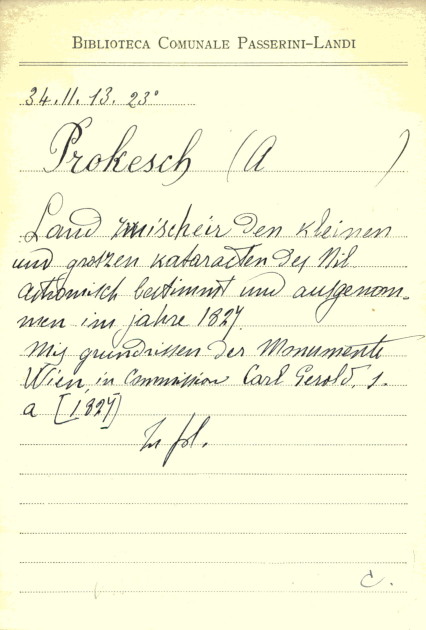 BIBLIOTECA COMUNALE PASSERINI-LANDI
34.II.13. 23°
Prokesch (A )
Land zwischeir den kleinen
und groszen katarakten des Nil
astronomisch bestimmt und aufgenom-
men im jahre 1827.
Mis grundrissen der Monumente
Wien, in Commission Carl Gerold, s.
a [1827]
In fol.
C.